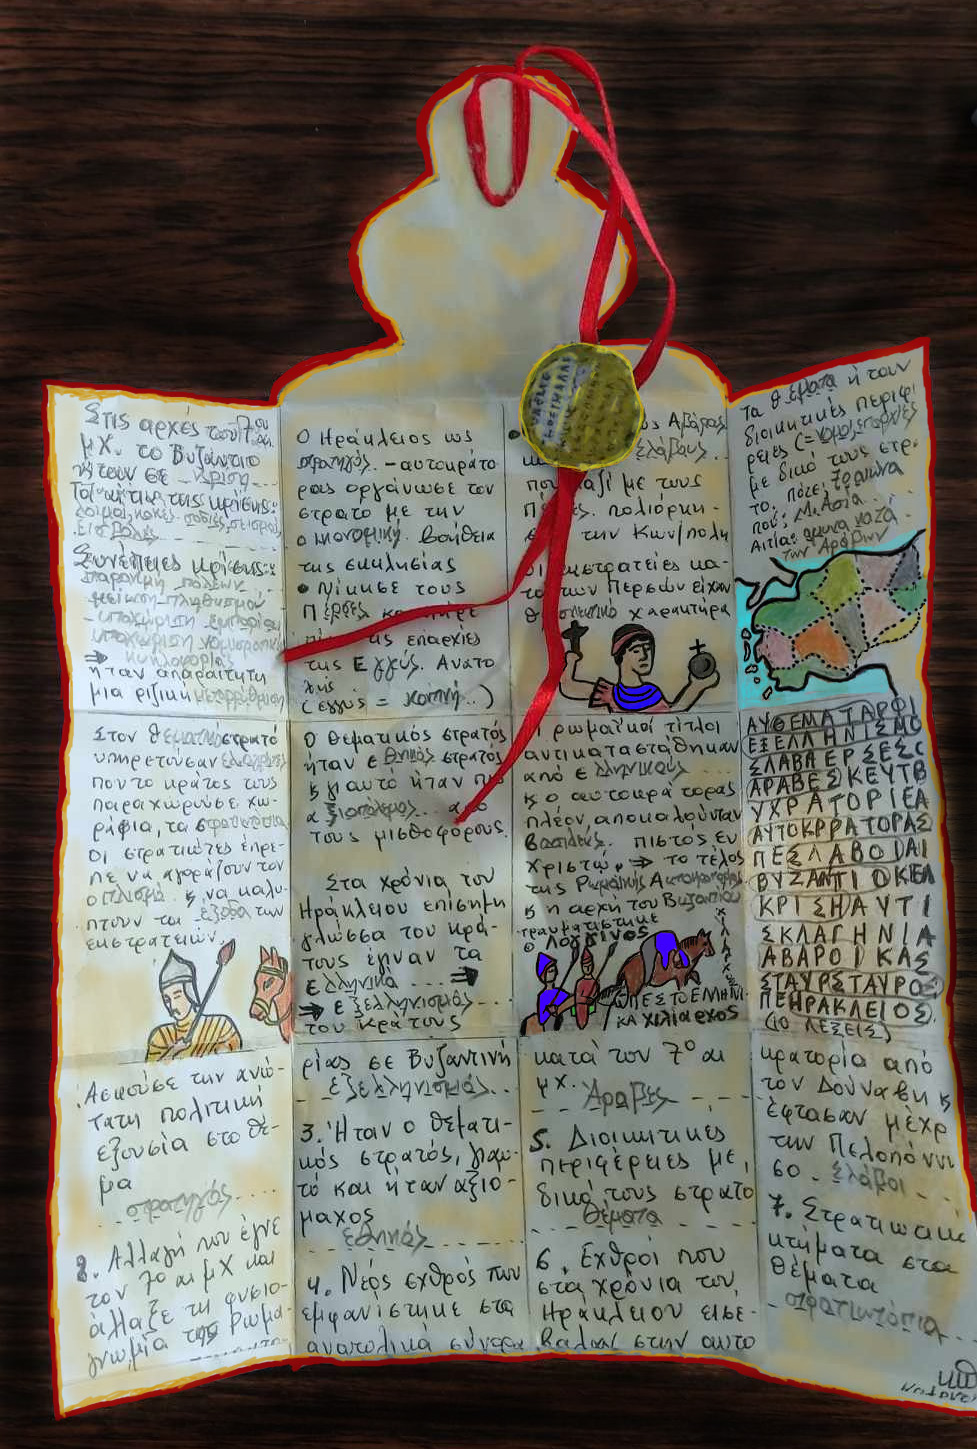 Στις αρχές του 7ου αι.
μΧ. το Βυζάντιο
ήταν σε κρίση
Τα αίτια της κρίσης:
λοιμοί, κακές σοδιές, σεισμοί,
εισβολές
Συνέπειες κρίσης:
παρακμή πόλεων
μείωση πληθυσμού
υποχώρηση εμπορίου
υποχώρηση νομισματικής
κυκλοφορίας
⇒
ήταν απαραίτητη
μια ριζική μεταρρύθμιση
Ο Ηράκλειος ως
στρατηγός - αυτοκράτο
ρας οργάνωσε τον
στρατό με την
οικονομική βοήθεια
της εκκλησίας
• Νίκησε τους
Πέρσες
της επαρχίες
της Εγγύς Ανατο
λής
(εγγύς = κοντινή..)
• Αβάρους
Σλάβους
που μαζί με τους
Πέρσες πολιόρκη-
την Κων/πολη
εκστρατείες κα-
τά των Περσών είχαν
θρησκευτικό χαρακτήρα
Τα θέματα ήταν
διοικητικές περιφέ
ρειες (=νομοί, επαρχίες
με δικό τους στρα-
το. πότε: 7ο αιώνα
που: Μ. Ασία
Αιτία: άμυνα κατά
των Αράβων
Στον θεματικό στρατό
υπηρετούσαν ελεύθεροι
που το κράτος τους
παραχωρούσε χω-
ράφια, τα στρατιωτόπια
Οι στρατιώτες έπρε-
πε να αγοράζουν τον
οπλισμό & να καλύ-
πτουν τα έξοδα των
εκστρατειών.
Ο θεματικός στρατός
ήταν εθνικός στρατός
& γι αυτό ήταν πιο
αξιόπιστος από
τους μισθοφόρους.
Στα χρόνια του
Ηράκλειου επίσημη
γλώσσα του κρά-
τους έγιναν τα
ελληνικά ⇒
⇒ εξελληνισμός
του κράτους
ρωμαϊκοί τίτλοι
αντικαταστάθηκαν
από ελληνικούς
& ο αυτοκράτορας
πλέον, αποκαλούνταν
βασιλεύς πιστός εν
Χριστώ. ⇒ το τέλος
της Ρωμαϊκής Αυτοκρατορίας
& η αρχή του Βυζαντίου
τραυματίστηκε
ο Λογγίνος
ΧΙΛΙΑΡΧΟΣ
ΠΕΣ ΤΟ ΕΛΛΗΝΙ-
ΚΑ ΧΙΛΙΑΡΧΟΣ
ΑΥΘΕΜΑΤΑΡΦΙ
ΕΞΕΛΛΗΝΙΣΜΟ
ΣΛΑΒΑΠΕΡΣΕΣΟ
ΑΡΑΒΕΣΚΕΥΤΒ
ΥΧΡΑΤΟΡΙΕΑ
ΑΥΤΟΚΡΡΑΤΟΡΑΣ
ΠΕΣΛΑΒΟΙΑΙ
ΒΥΖΑΝΤΙΟΚΕΛ
ΚΡΙΣΗΑΥΤΙ
ΣΚΛΑΓΗΝΙΑ
ΑΒΑΡΟΙΚΑΣ
ΣΤΑΥΡΣΤΑΥΡΟΣ
ΠΕΗΡΑΚΛΕΙΟΣ
(10 ΛΕΞΕΙΣ)
Ασκούσε την ανώ-
τατη πολιτική
εξουσία στο θέ-
μα
στρατηγός
2. Αλλαγή που έγινε
τον 7ο αι μΧ και
άλλαξε τη φυσιο-
γνωμία της Ρωμα-
ρίας σε Βυζαντινή
εξελληνισμός
3. Ήταν ο θεματι-
κός στρατός, γιαυ-
τό και ήταν αξιό-
μαχος
εθνικός
4. Νέος εχθρός που
εμφανίστηκε στα
ανατολικά σύνορα
κατά τον 7ο αι
μΧ.
Άραβες
5. Διοικητικές
περιφέρειες με
δικό τους στρατό
θέματα
6. Εχθροί που
στα χρόνια του
Ηράκλειου εισέ-
βαλαν στην αυτο
κρατορία από
τον Δούναβη &
έφτασαν μέχρ
την Πελοπόννη
σο. Σλάβοι
7. Στρατιωτικά
κτήματα στα
θέματα
στρατιωτόπια